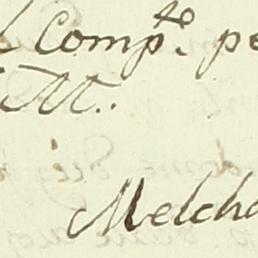 Comp.te pe
M..
Melcho